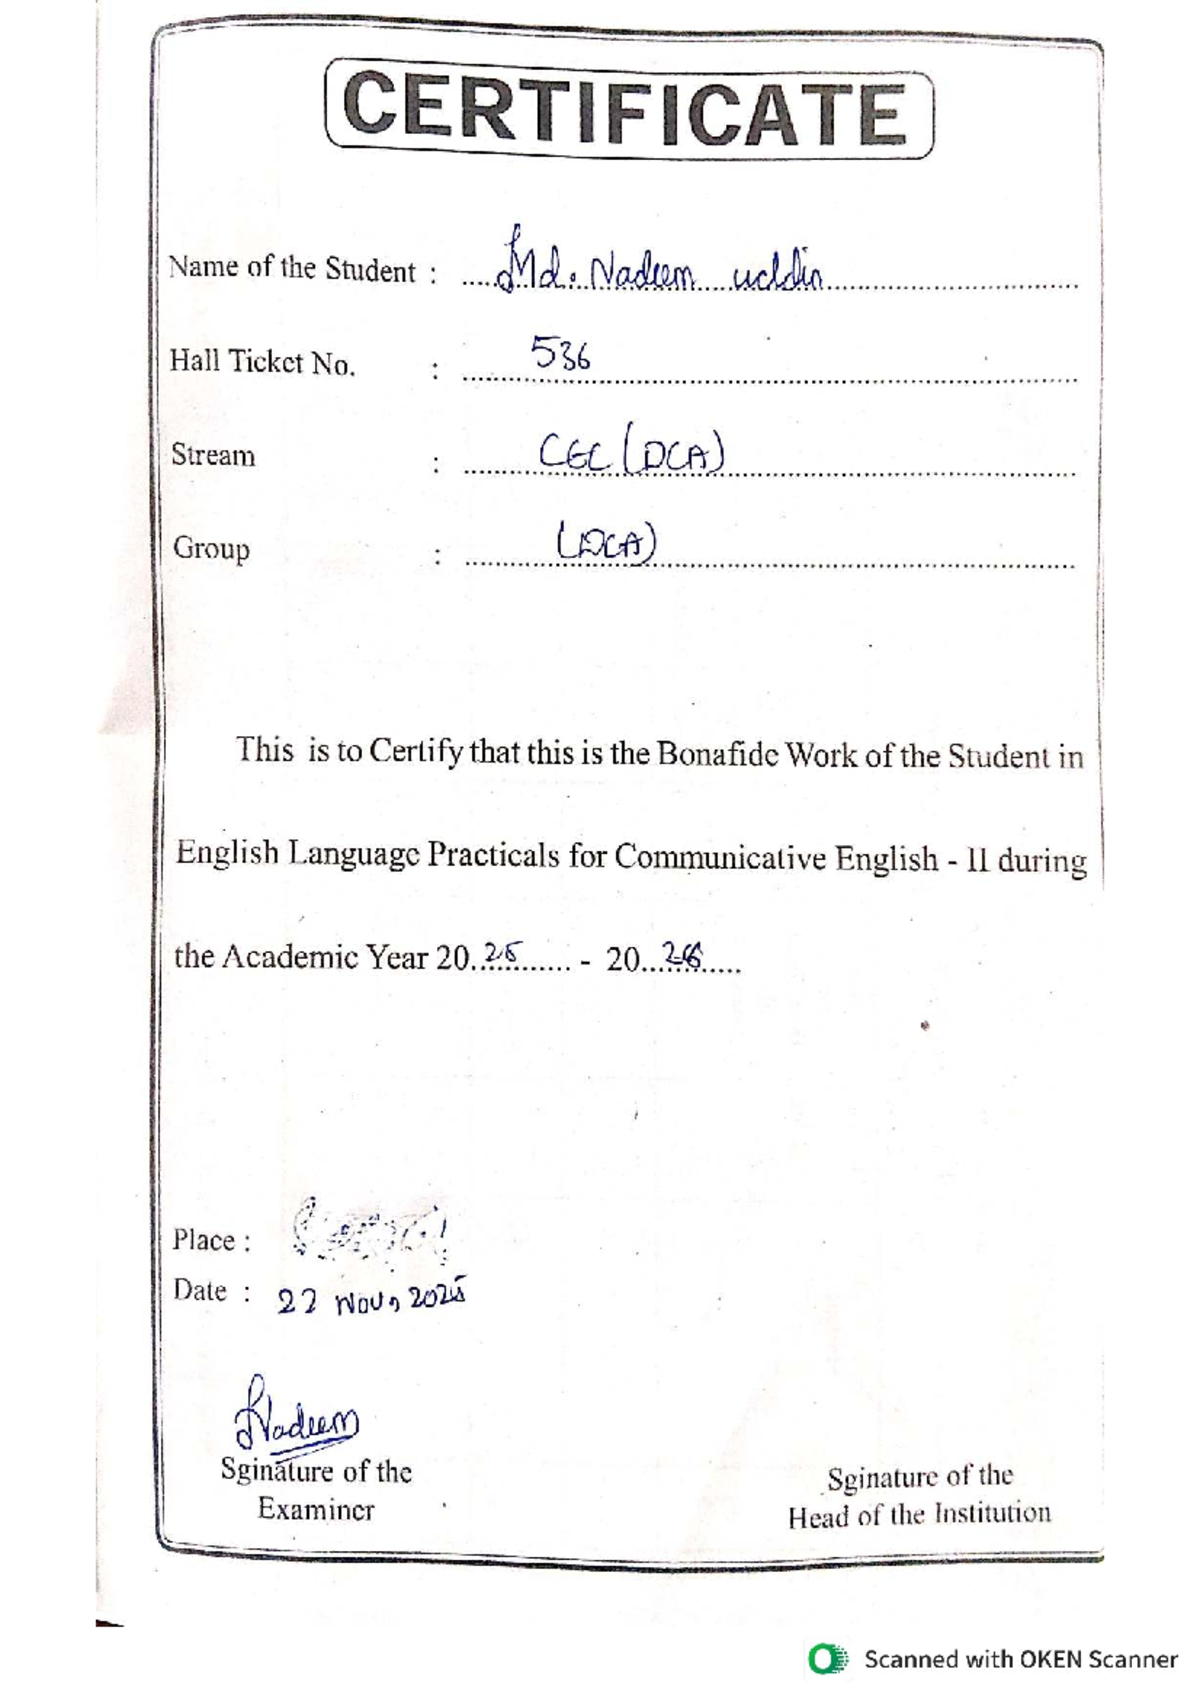 CERTIFICATE
Name of the Student : Md. Nadeem uddin
Hall Ticket No. : 536
Stream : CEC (DCA)
Group : (DCA)
This is to Certify that this is the Bonafide Work of the Student in
English Language Practicals for Communicative English - II during
the Academic Year 20.25........ - 20...26.....
Place :
Date : 22 Nov, 2025
Nadeem
Sginature of the
Examiner
Sginature of the
Head of the Institution
Scanned with OKEN Scanner